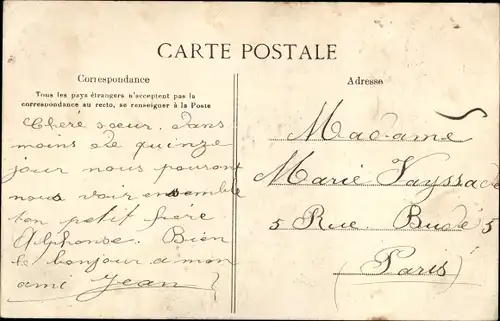 CARTE POSTALE
Correspondance
Tous les pays étrangers n'acceptent pas la
correspondance au recto, se renseigner à la Poste
Chéré sœur. dans
moins de quinze
jour nous pouront
nous voir ensemble
ton petit frére
Alphonse. Bien
le bonjour a mon
ami Jean
Adresse
Madame
Marie Vayssac
5 Rue. Budé 5
(Paris)